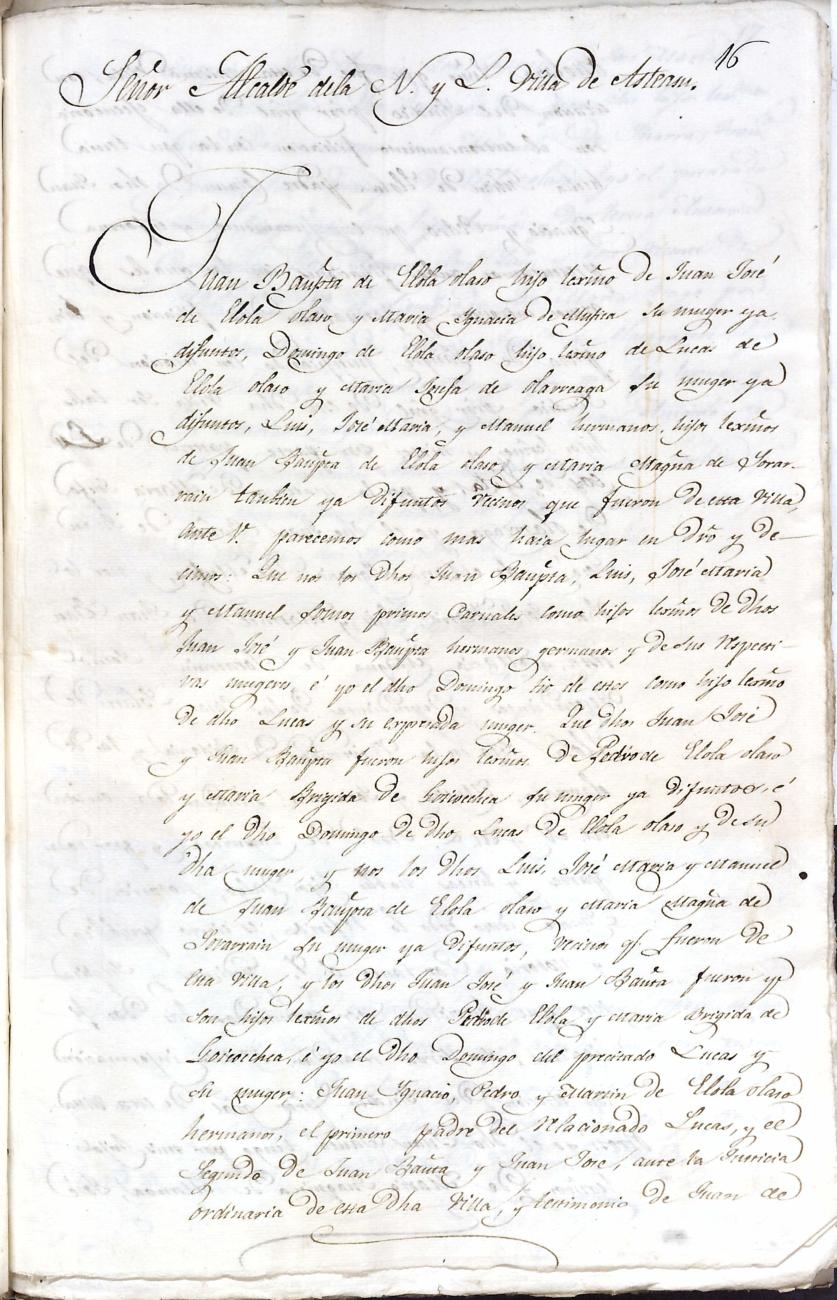 16
Señor Alcalde dela N. y L. Villa de Asteasu.
Juan Baup̃ta de Elola olaso hijo lexmo de Juan José
de Elola olaso y Maria Ignacia de Mugica su muger ya
difuntos, Domingo de Elola olaso hijo lexmo de Lucas de
Elola olaso y Maria Josefa de olarreaga su muger ya
difuntos, Luis, José Maria, y Manuel hermanos, hijos lexmos
de Juan Baup̃ta de Elola olaso, y Maria Magña de Sorar-
rain tanbien ya difuntos vecinos que fueron de esta Villa,
ante V. parecemos como mas haia lugar en dro y de-
cimos: Que nos los dhos Juan Baup̃ta, Luis, José Maria
y Manuel somos primos carnales como hijos lexmos de dhos
Juan José y Juan Baup̃ta hermanos germanos y de sus respecti-
vas mugeres, é yo el dho Domingo tio de estos como hijo lexmo
de dho Lucas y su expresada muger. Que dhos Juan José
y Juan Baup̃ta fueron hijos lexmos de Pedro de Elola olaso
y Maria Brigida de Goicoechea su muger ya difuntos, é
yo el dho Domingo de dho Lucas de Elola olaso y de su
dha muger, y nos los dhos Luis, José Maria y Manuel
de Juan Baup̃ta de Elola olaso y Maria Magña de
Sorarrain su muger ya difuntos, vecinos q̃. fueron de
esta Villa, y los dhos Juan José y Juan Bauta fueron y
son hijos lexmos de dhos Pedro de Elola y Maria Brigida de
Goicoechea, é yo el dho Domingo del precitado Lucas y
su muger: Juan Ignacio, Pedro, y Martin de Elola olaso
hermanos, el primero padre del relacionado Lucas, y el
segundo de Juan Bauta y Juan José, ante la Justicia
ordinaria de esta dha Villa, y testimonio de Juan de